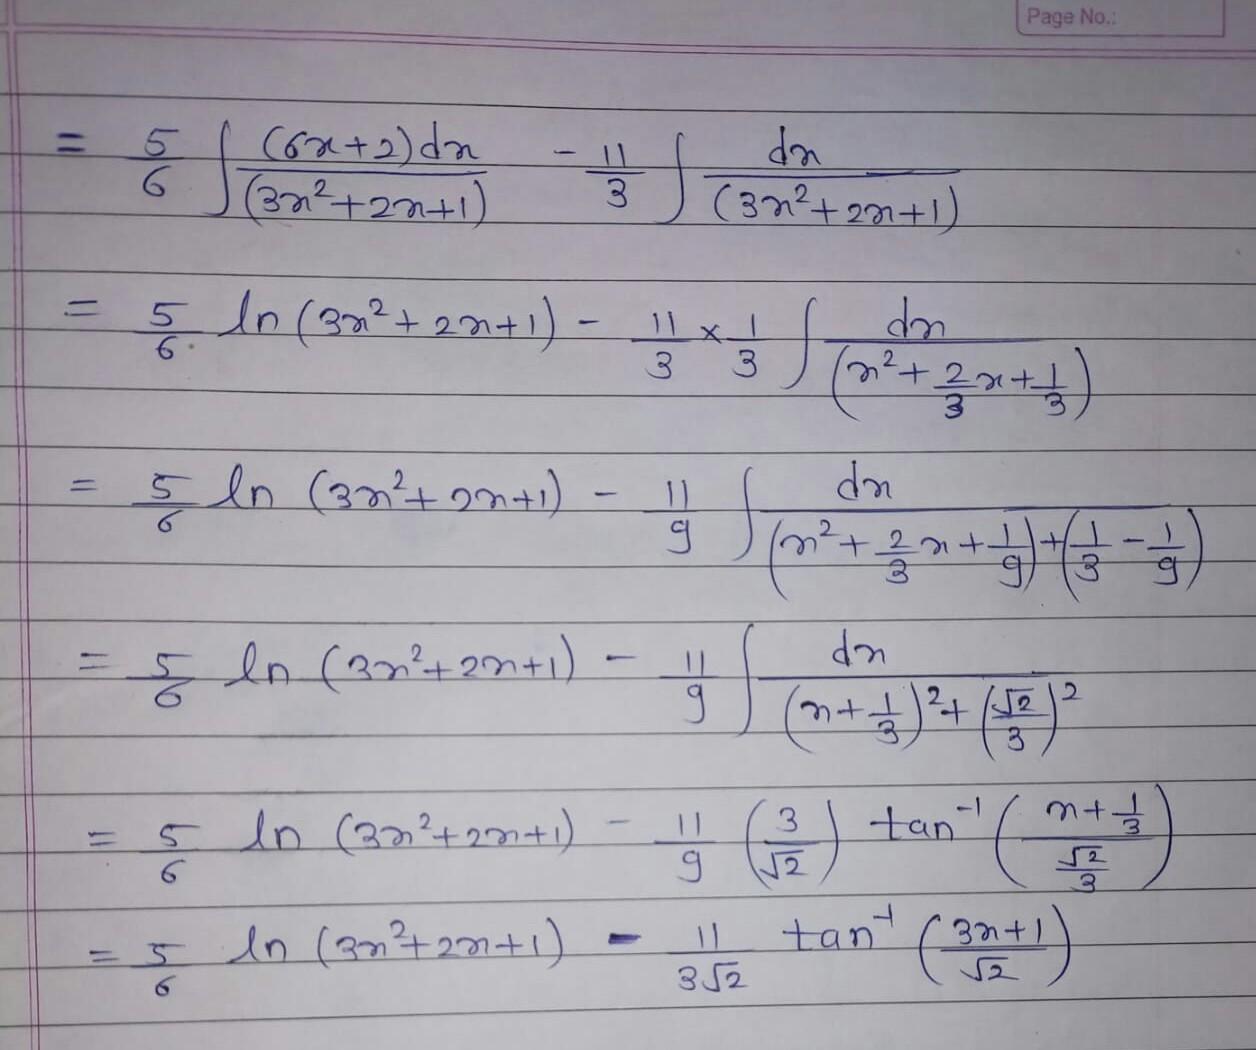 Page No.:
= 5/6 ∫ (6x+2)dx/(3x²+2x+1) - 11/3 ∫ dx/(3x²+2x+1)
= 5/6 ln (3x²+2x+1) - 11/3 × 1/3 ∫ dx/(x²+2/3 x+1/3)
= 5/6 ln (3x²+2x+1) - 11/9 ∫ dx/((x²+2/3 x+1/9)+(1/3-1/9))
= 5/6 ln (3x²+2x+1) - 11/9 ∫ dx/((x+1/3)²+(√2/3)²)
= 5/6 ln (3x²+2x+1) - 11/9 (3/√2) tan⁻¹ ((x+1/3)/(√2/3))
= 5/6 ln (3x²+2x+1) - 11/3√2 tan⁻¹ ((3x+1)/√2)